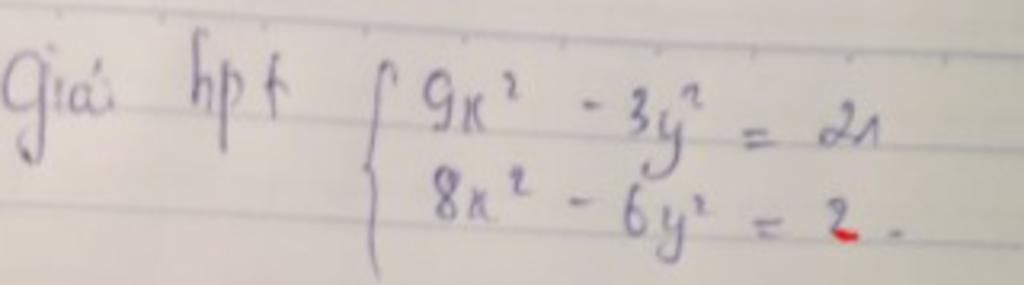 Giải hpt { 9x² - 3y² = 21
8x² - 6y² = 2.